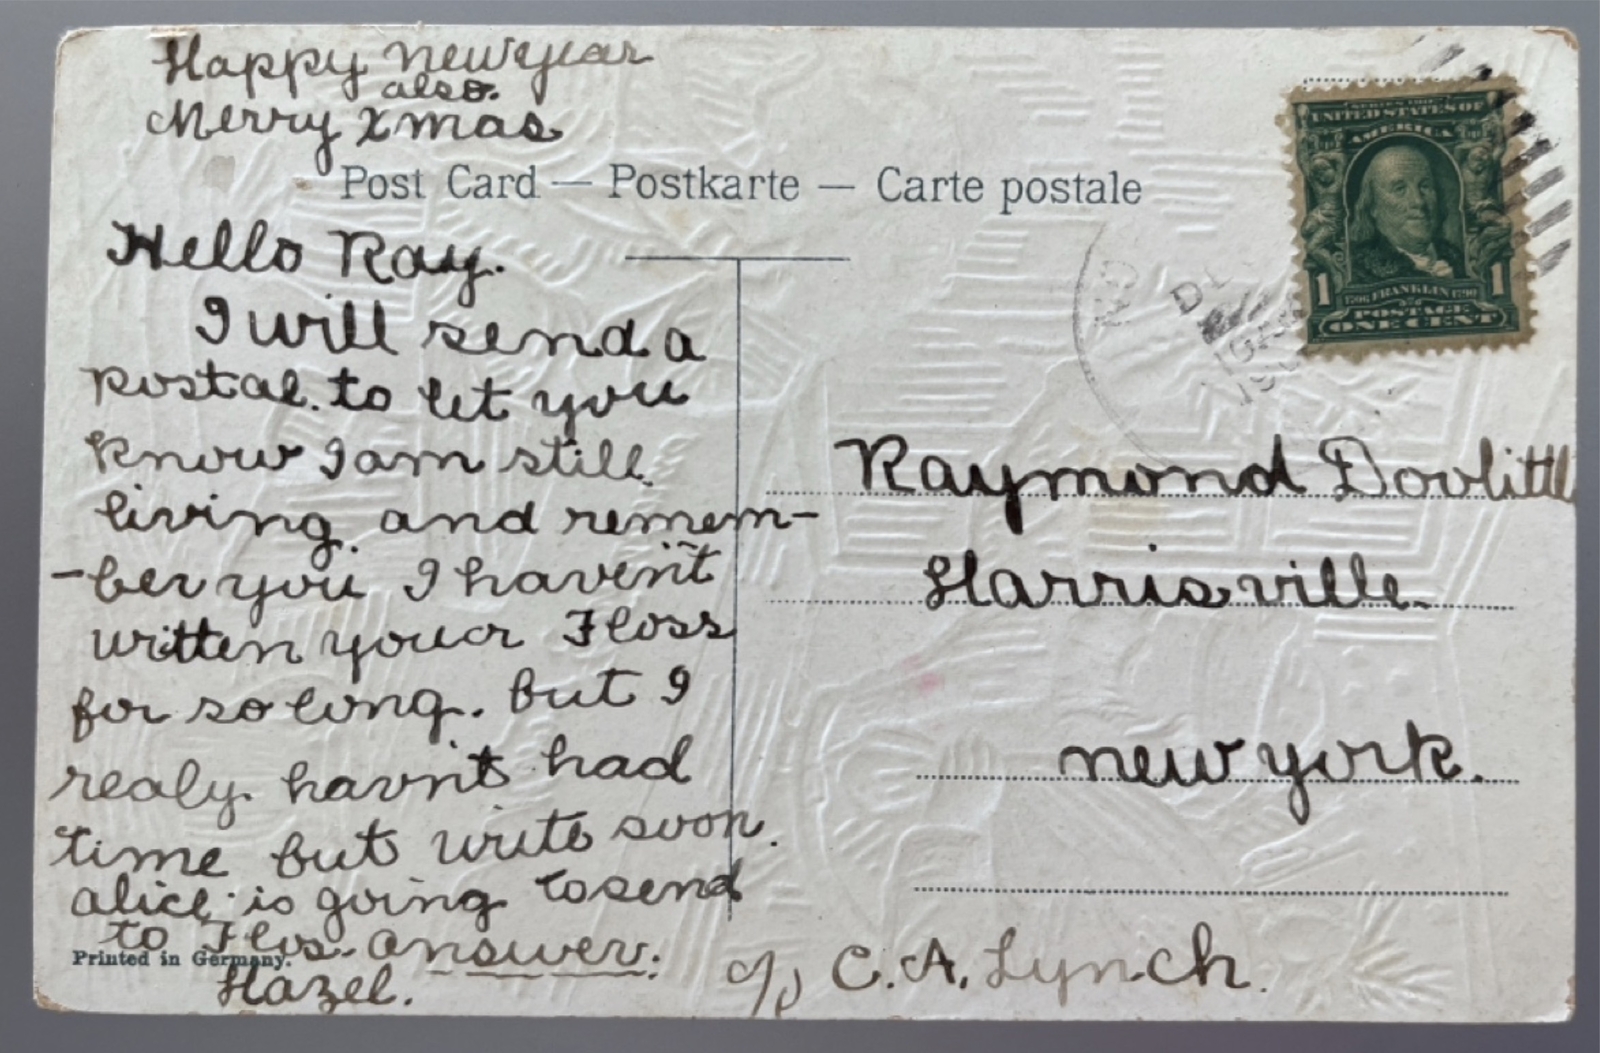 Happy new year
also.
Merry Xmas
Post Card — Postkarte — Carte postale
Hello Ray.
I will send a
postal. to let you
know I am still
living. and remem-
-ber you I haven't
written you or Floss
for so long. but I
realy havn't had
time but write soon.
alice is going to send
to Flos. answer.
Hazel.
Printed in Germany.
SERIES 1902
UNITED STATES OF
AMERICA
1 1
1706 FRANKLIN 1790
POSTAGE
ONE CENT
Raymond Doolittle
Harrisville.
new york.
c/o C. A. Lynch.